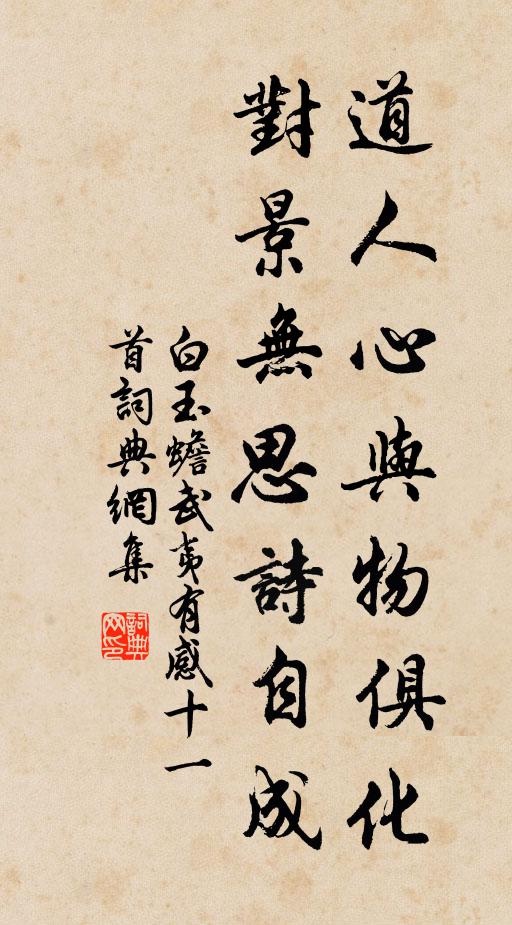 道人心與物俱化
對景無思詩自成
白玉蟾武夷有感十一
首詞典網集
詞典
网印